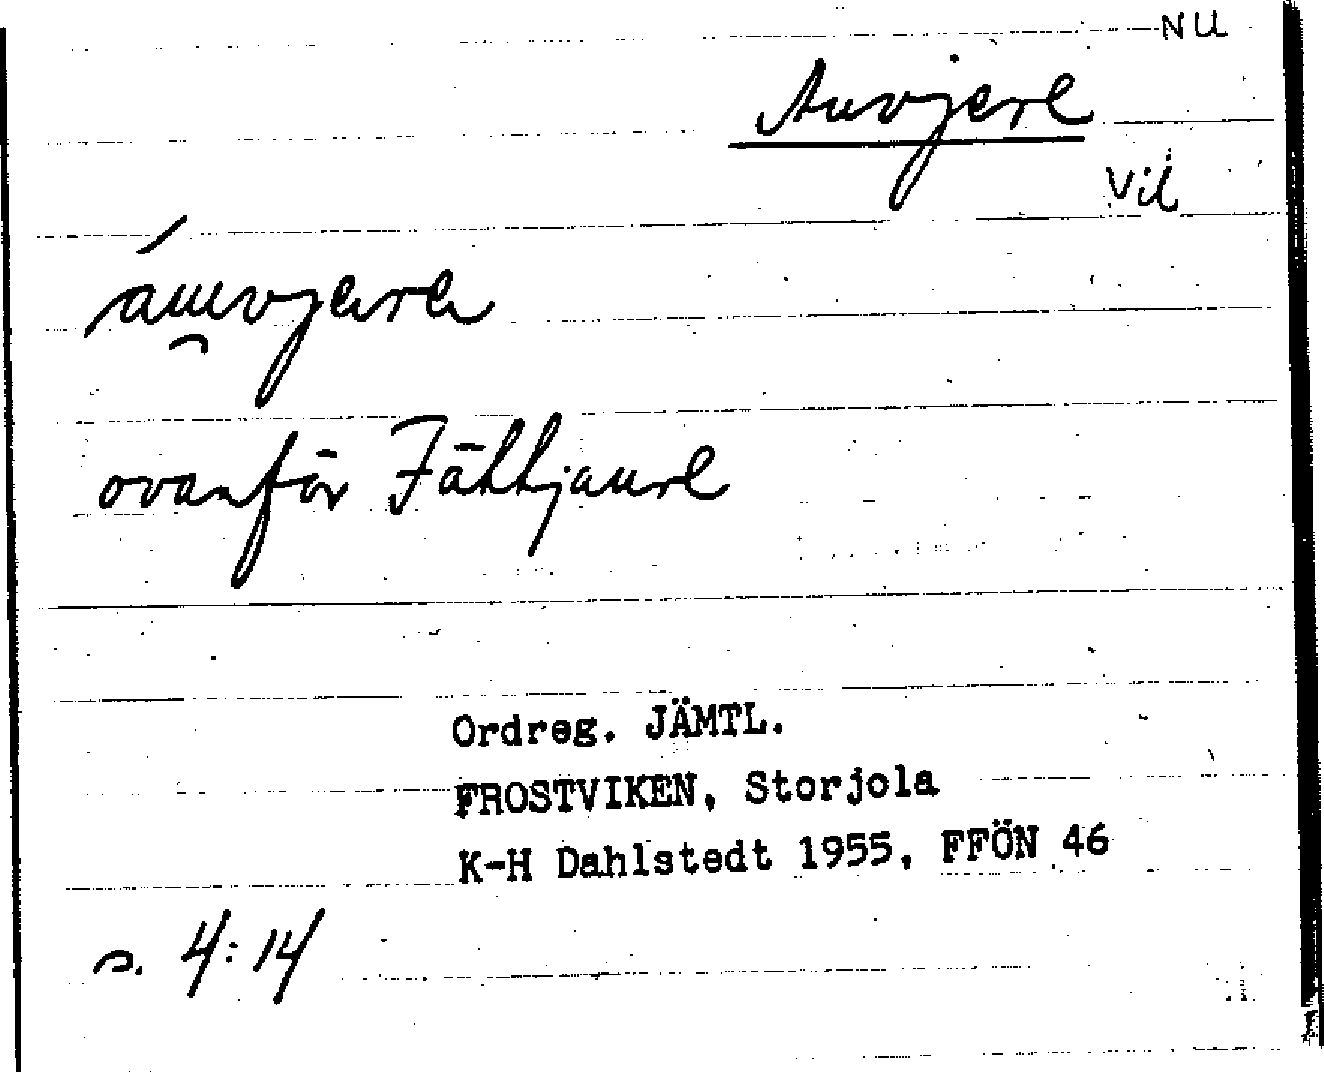 NU
Auvjere
Vil
ovanför Fåhkjaure
Ordreg. JÄMTL.
FROSTVIKEN, Storjola
K-H Dahlstedt 1955, FFÖN 46
s. 4:14